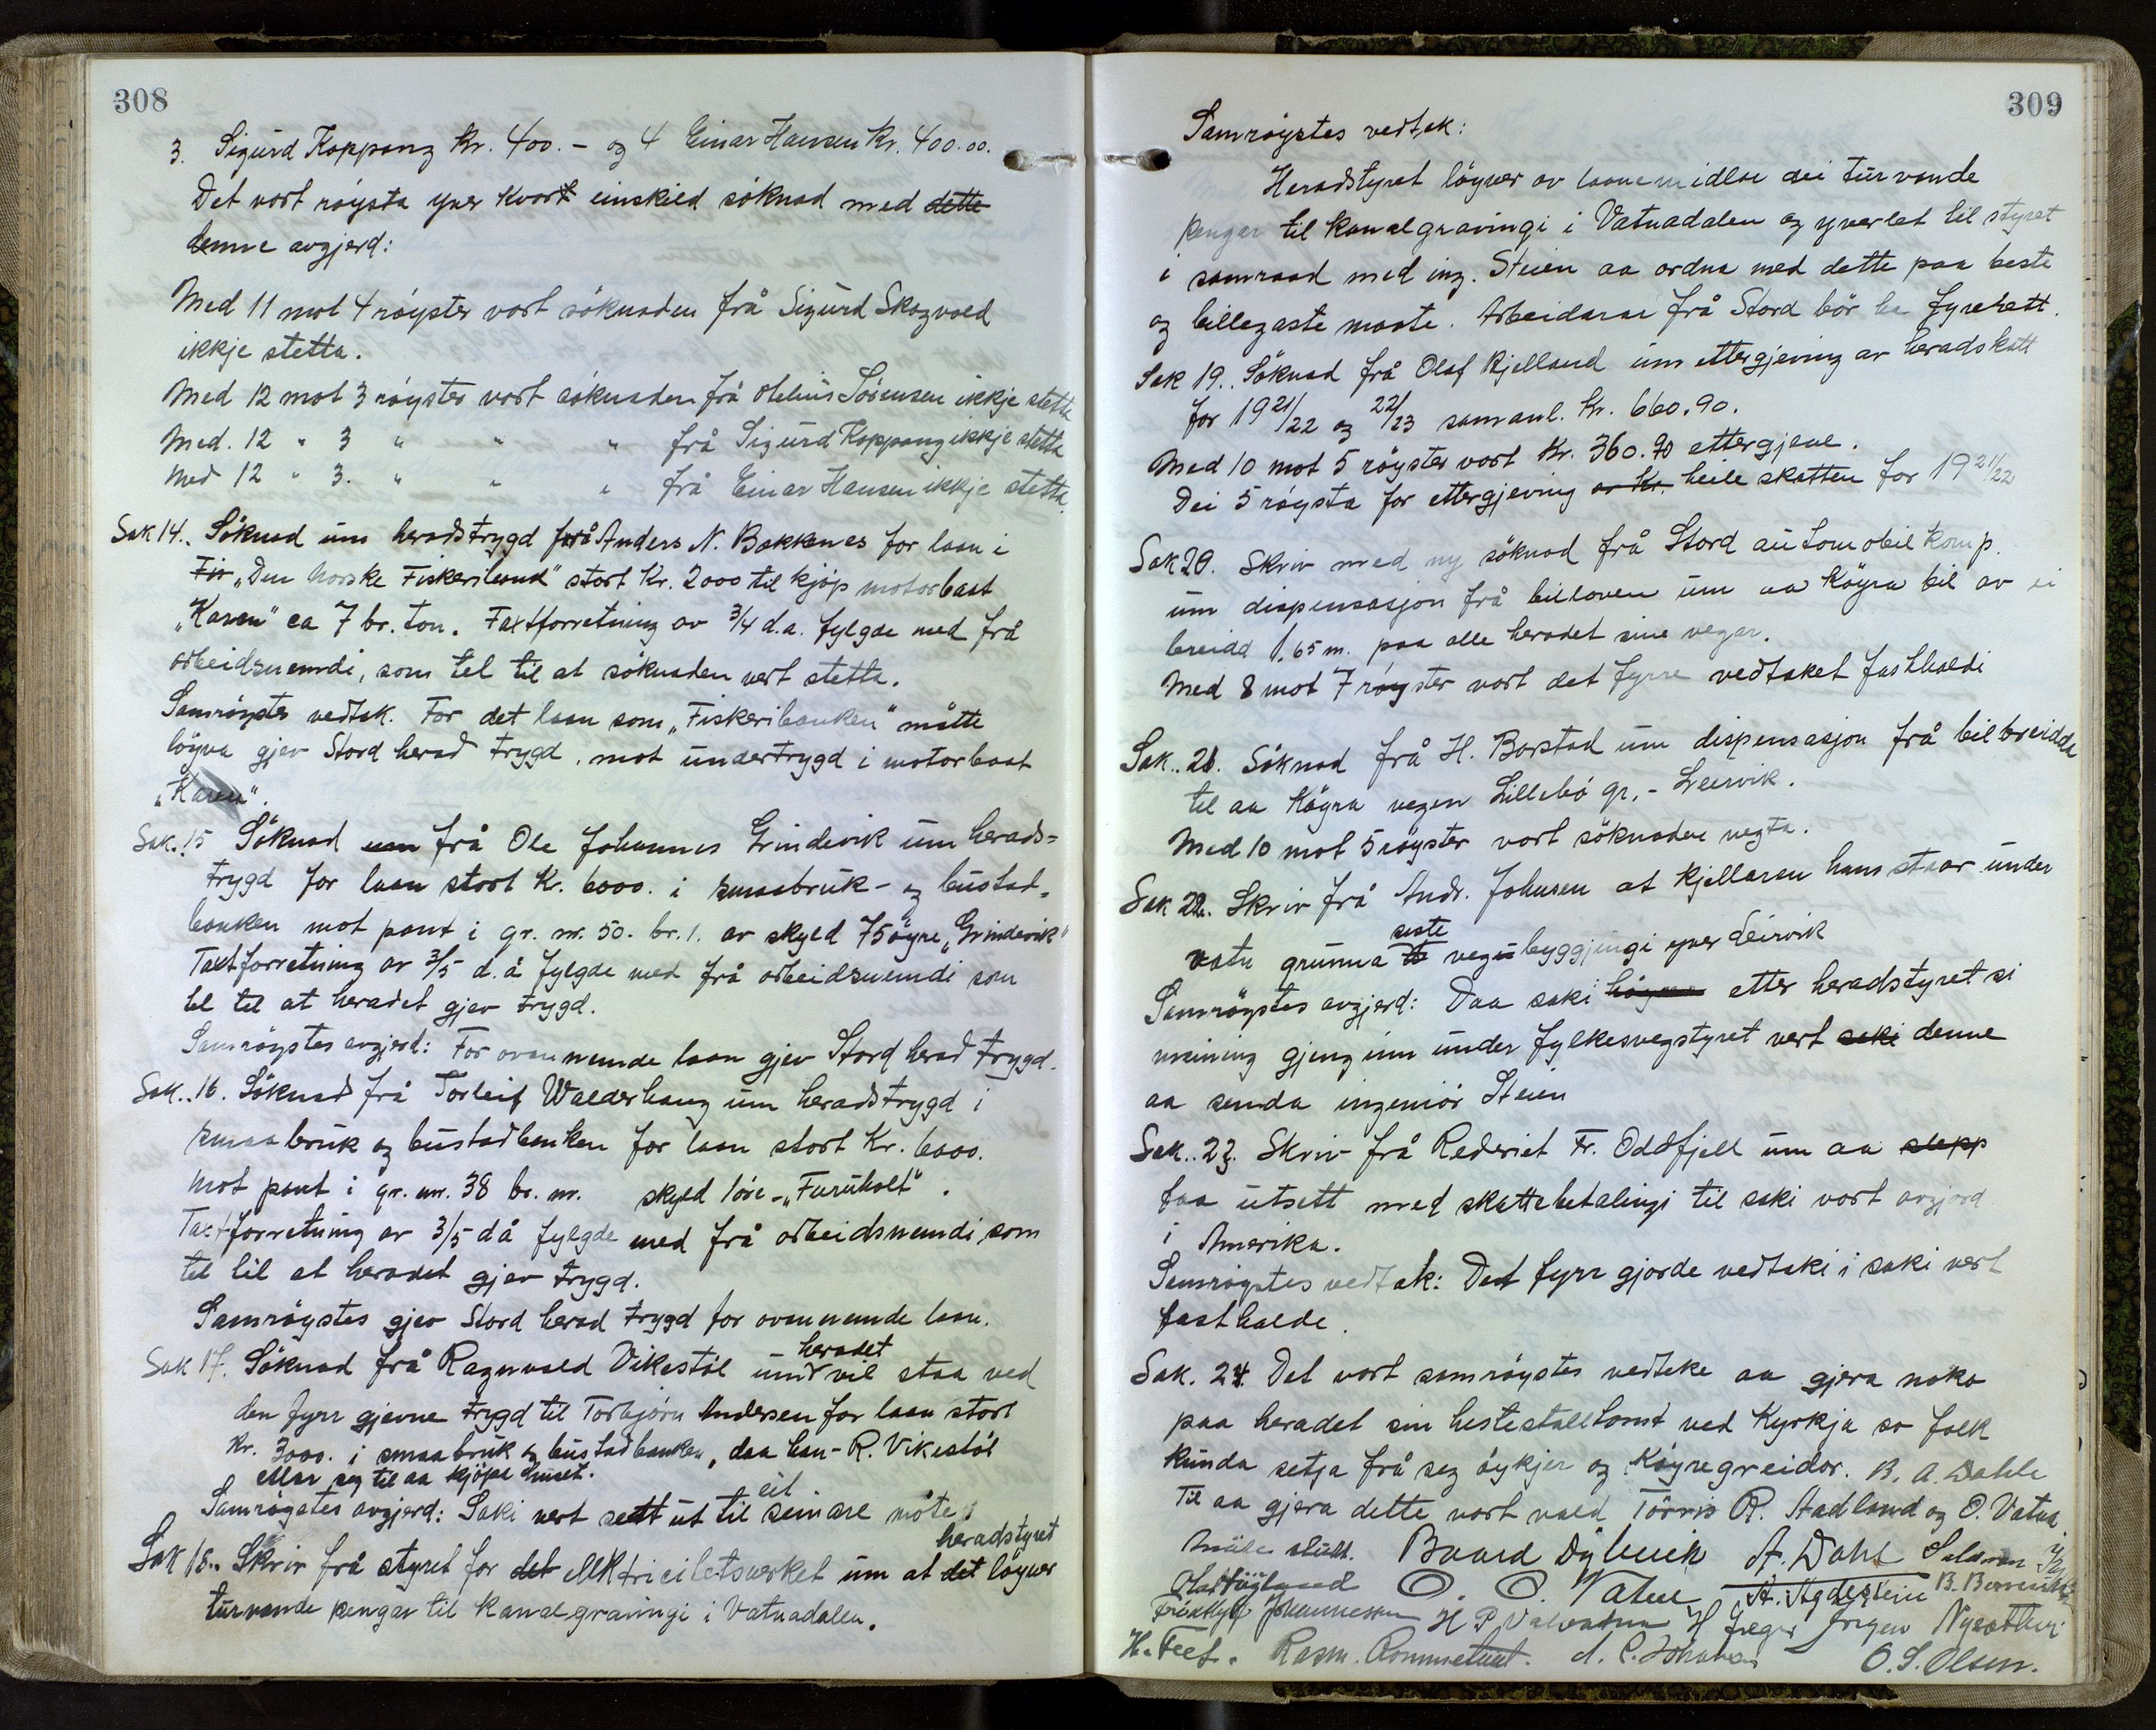 308
3. Sigurd Koppang kr. 400.- og 4 Einar Hansen kr. 400.00.
Det vort røysta yver kvart einskild söknad med dette
denne avgjerd:
Med 11 mot 4 røyster vort söknaden frå Sigurd Skogvold
ikkje stetta.
Med 12 mot 3 røyster vort söknaden frå Sörensen ikkje stetta
Med. 12 " 3 " " " frå Sigurd Koppang ikkje stetta
Med 12 " 3. " " " frå Einar Hansen ikkje stetta.
Sak 14. Söknad um heradstrygd frå Anders N. Bakkenes for laan i
Fis „Den norske Fiskeribank" stort Kr. 2000 til kjöp motorbaat
„Karen" ca 7 br. ton. Taxtforretning av 3/4 d.a. fylgde med frå
arbeidsnemdi, som tel til at söknaden vert stetta.
Samrøystes vedtak. For det laan som „Fiskeribanken" måtte
löyva gjev Stord herad trygd, mot undertrygd i motorbaat
„Karen".
Sak. 15 Söknad um frå Ole Johannes Grindevik um herads=
trygd for laan stort Kr. 6000. i smaabruk- og bustad=
banken mot pant i gr. nr. 50. br. 1. av skyld 75 øyre „Grindevik"
Taxtforretning av 3/5 d.å fylgde med frå arbeidsnemdi som
tel til at heradet gjev trygd.
Samrøystes avgjerd: For ovannemnde laan gjev Stord herad trygd.
Sak.. 16. Söknad frå Torleif Walderhaug um heradstrygd i
smaabruk og bustadbanken for laan stort Kr. 6000.
mot pant i gr. nr. 38 br. nr. skyld 1 öre - „Furuholt".
Taxtforretning av 3/5 då fylgde med frå arbeidsnemdi, som
tel til at heradet gjev trygd.
Samrøystes gjev Stord herad trygd for ovannemnde laan.
heradet
Sak 17. Söknad frå Ragnvald Vikestöl um vil staa ved
den fyrr gjevne trygd til Torbjørn Andersen for laan stort
Kr. 3000. i smaabruk & bustadbanken, daa han - R. Vikestöl
etlar seg til aa kjöpe huset.
eit
Samrøystes avgjerd: Saki vert sett ut til seinare møte
heradstyret
Sak 18.. Skriv frå styret for det elektricitetsverket um at det löyver
turvande pengar til kanalgravingi i Vatnadalen.
309
Samrøystes vedtak:
Heradstyret löyver av laanemidlar dei turvande
pengar til kanalgravingi i Vatnadalen og yverlet til styret
i samraad med ing. Steien aa ordna med dette paa beste
og billegaste maate. Arbeidarar frå Stord bör ha fyrerett.
Sak 19. Söknad frå Olaf Kjelland um ettergjeving av heradskatt
for 1921/22 og 22/23 samanl. Kr. 660.90.
Med 10 mot 5 røyster vort Kr. 360.90 ettergjeve.
Dei 5 røysta for ettergjeving av Kr. heile skatten for 1921/22
Sak 20. Skriv med ny söknad frå Stord automobilkomp.
um dispensasjon frå billoven um aa køyra bil av ei
breidd 1.65 m. paa alle heradet sine vegar.
Med 8 mot 7 røyster vort det fyrre vedtaket fasthaldi
Sak. 21. Söknad frå H. Borstad um dispensasjon frå bilbreidda
til aa køyra vegen Lillebö gr. - Leirvik.
Med 10 mot 5 røyster vort söknaden negta.
Sak 22. Skriv frå Andr. Johnsen at kjellaren hans staar under
siste
vatn grunna vegubyggjingi yver Leirvik
Samrøystes avgjerd: Daa saki etter heradstyret si
meining gjeng inn under fylkesvegstyret vert saki denne
aa senda ingeniör Steien
Sak.. 23. Skriv frå Rederiet Fr. Oddfjell um aa slepp
faa utsett med skattebetalingi til saki vort avgjord
i Amerika.
Samrøystes vedtak: Det fyrr gjorde vedtaki i saki vert
fasthalde.
Sak. 24. Det vort samrøystes vedteke aa gjera noko
paa heradet sin hestestalltomt ved Kyrkja so folk
kunda setja frå seg øykjer og køyregreidor. B. A. Dahle
Til aa gjera dette vort vald Törris R. Hadland og O. Vatna.
slutt. Baard Dyberik A. Dahl
O. O. Vatne A. Agdestein
Johannessen H P Valvatna H Jæger Jørgen
H. Feet. Rasm. Rommetveit. O. S. Olsen.